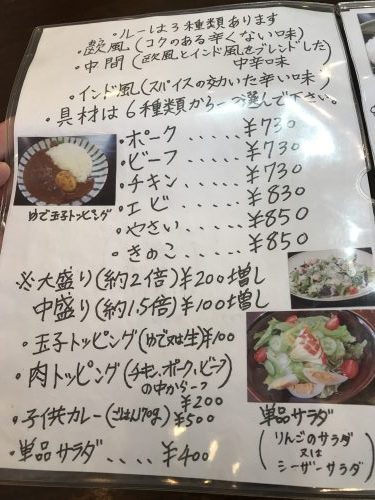 ・ルーは3種類あります
・欧風(コクのある辛くない口味)
・中間(欧風とインド風をブレンドした
中辛口味)
・インド風(スパイスの効いた辛い口味)
・具材は6種類から一つ選んで下さい。
・ポーク.....¥730
・ビーフ.....¥730
・チキン.....¥730
・エビ.....¥830
・やさい.....¥850
・きのこ.....¥850
ゆで玉子トッピング
※大盛り(約2倍)¥200増し
中盛り(約1.5倍)¥100増し
・玉子トッピング(ゆで又は生)¥100
・肉トッピング(チキン、ポーク、ビーフ
の中から一つ
¥200
・子供カレー(ごはん170g)¥500
・単品サラダ....¥400
単品サラダ
(りんごのサラダ
又は
シーザーサラダ)